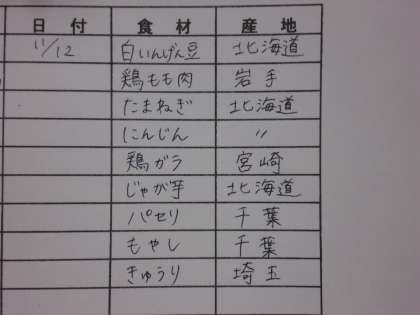 日付 食材 産地
11/12 白いんげん豆 北海道
鶏もも肉 岩手
たまねぎ 北海道
にんじん 〃
鶏ガラ 宮崎
じゃが芋 北海道
パセリ 千葉
もやし 千葉
きゅうり 埼玉